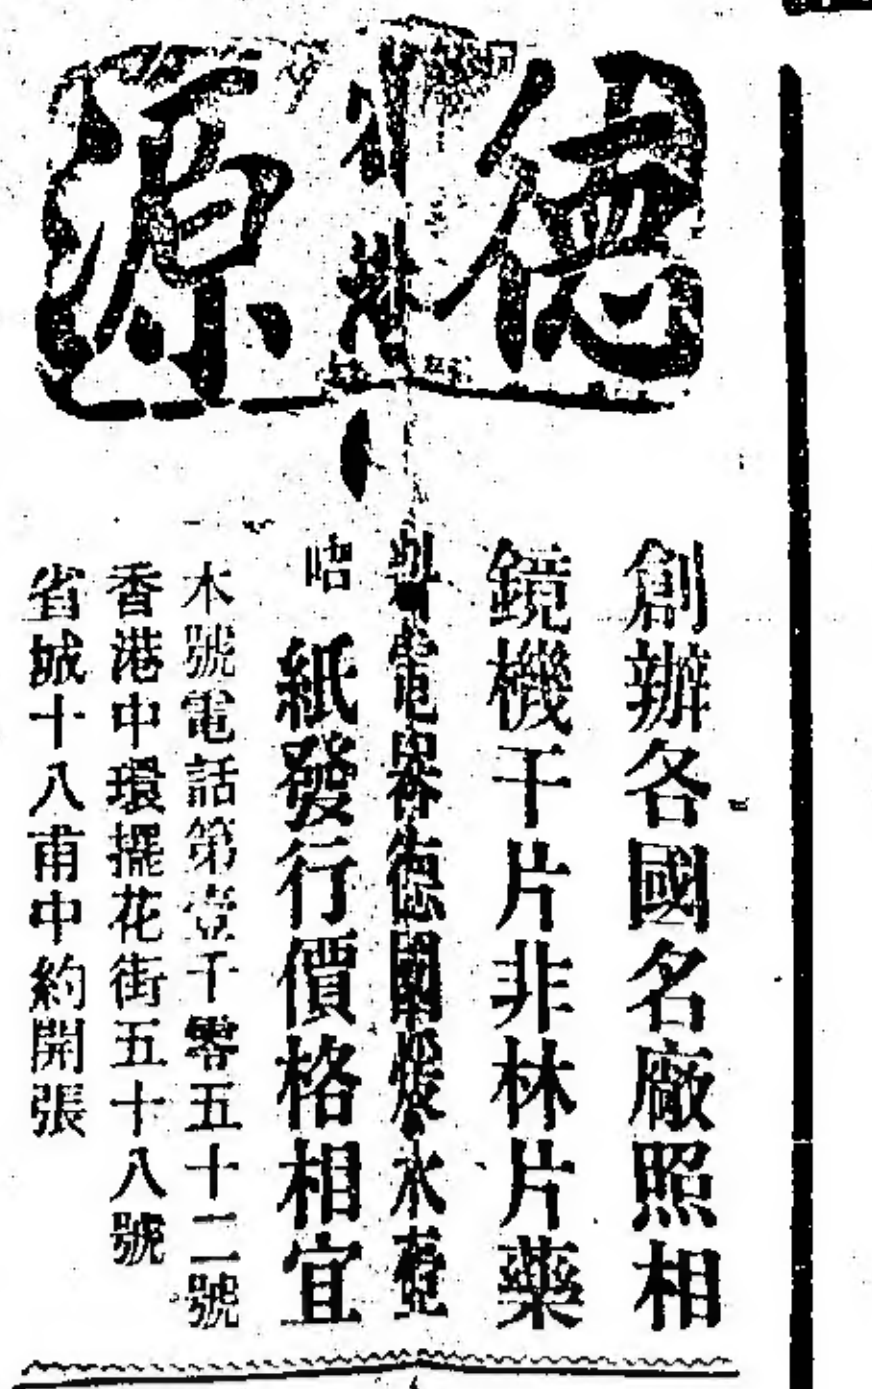 德源
港
創辦各國名廠照相
鏡機干片非林片藥
料電器德國煖水壺
咭紙發行價格相宜
本號電話第壹千零五十二號
香港中環擺花街五十八號
省城十八甫中約開張